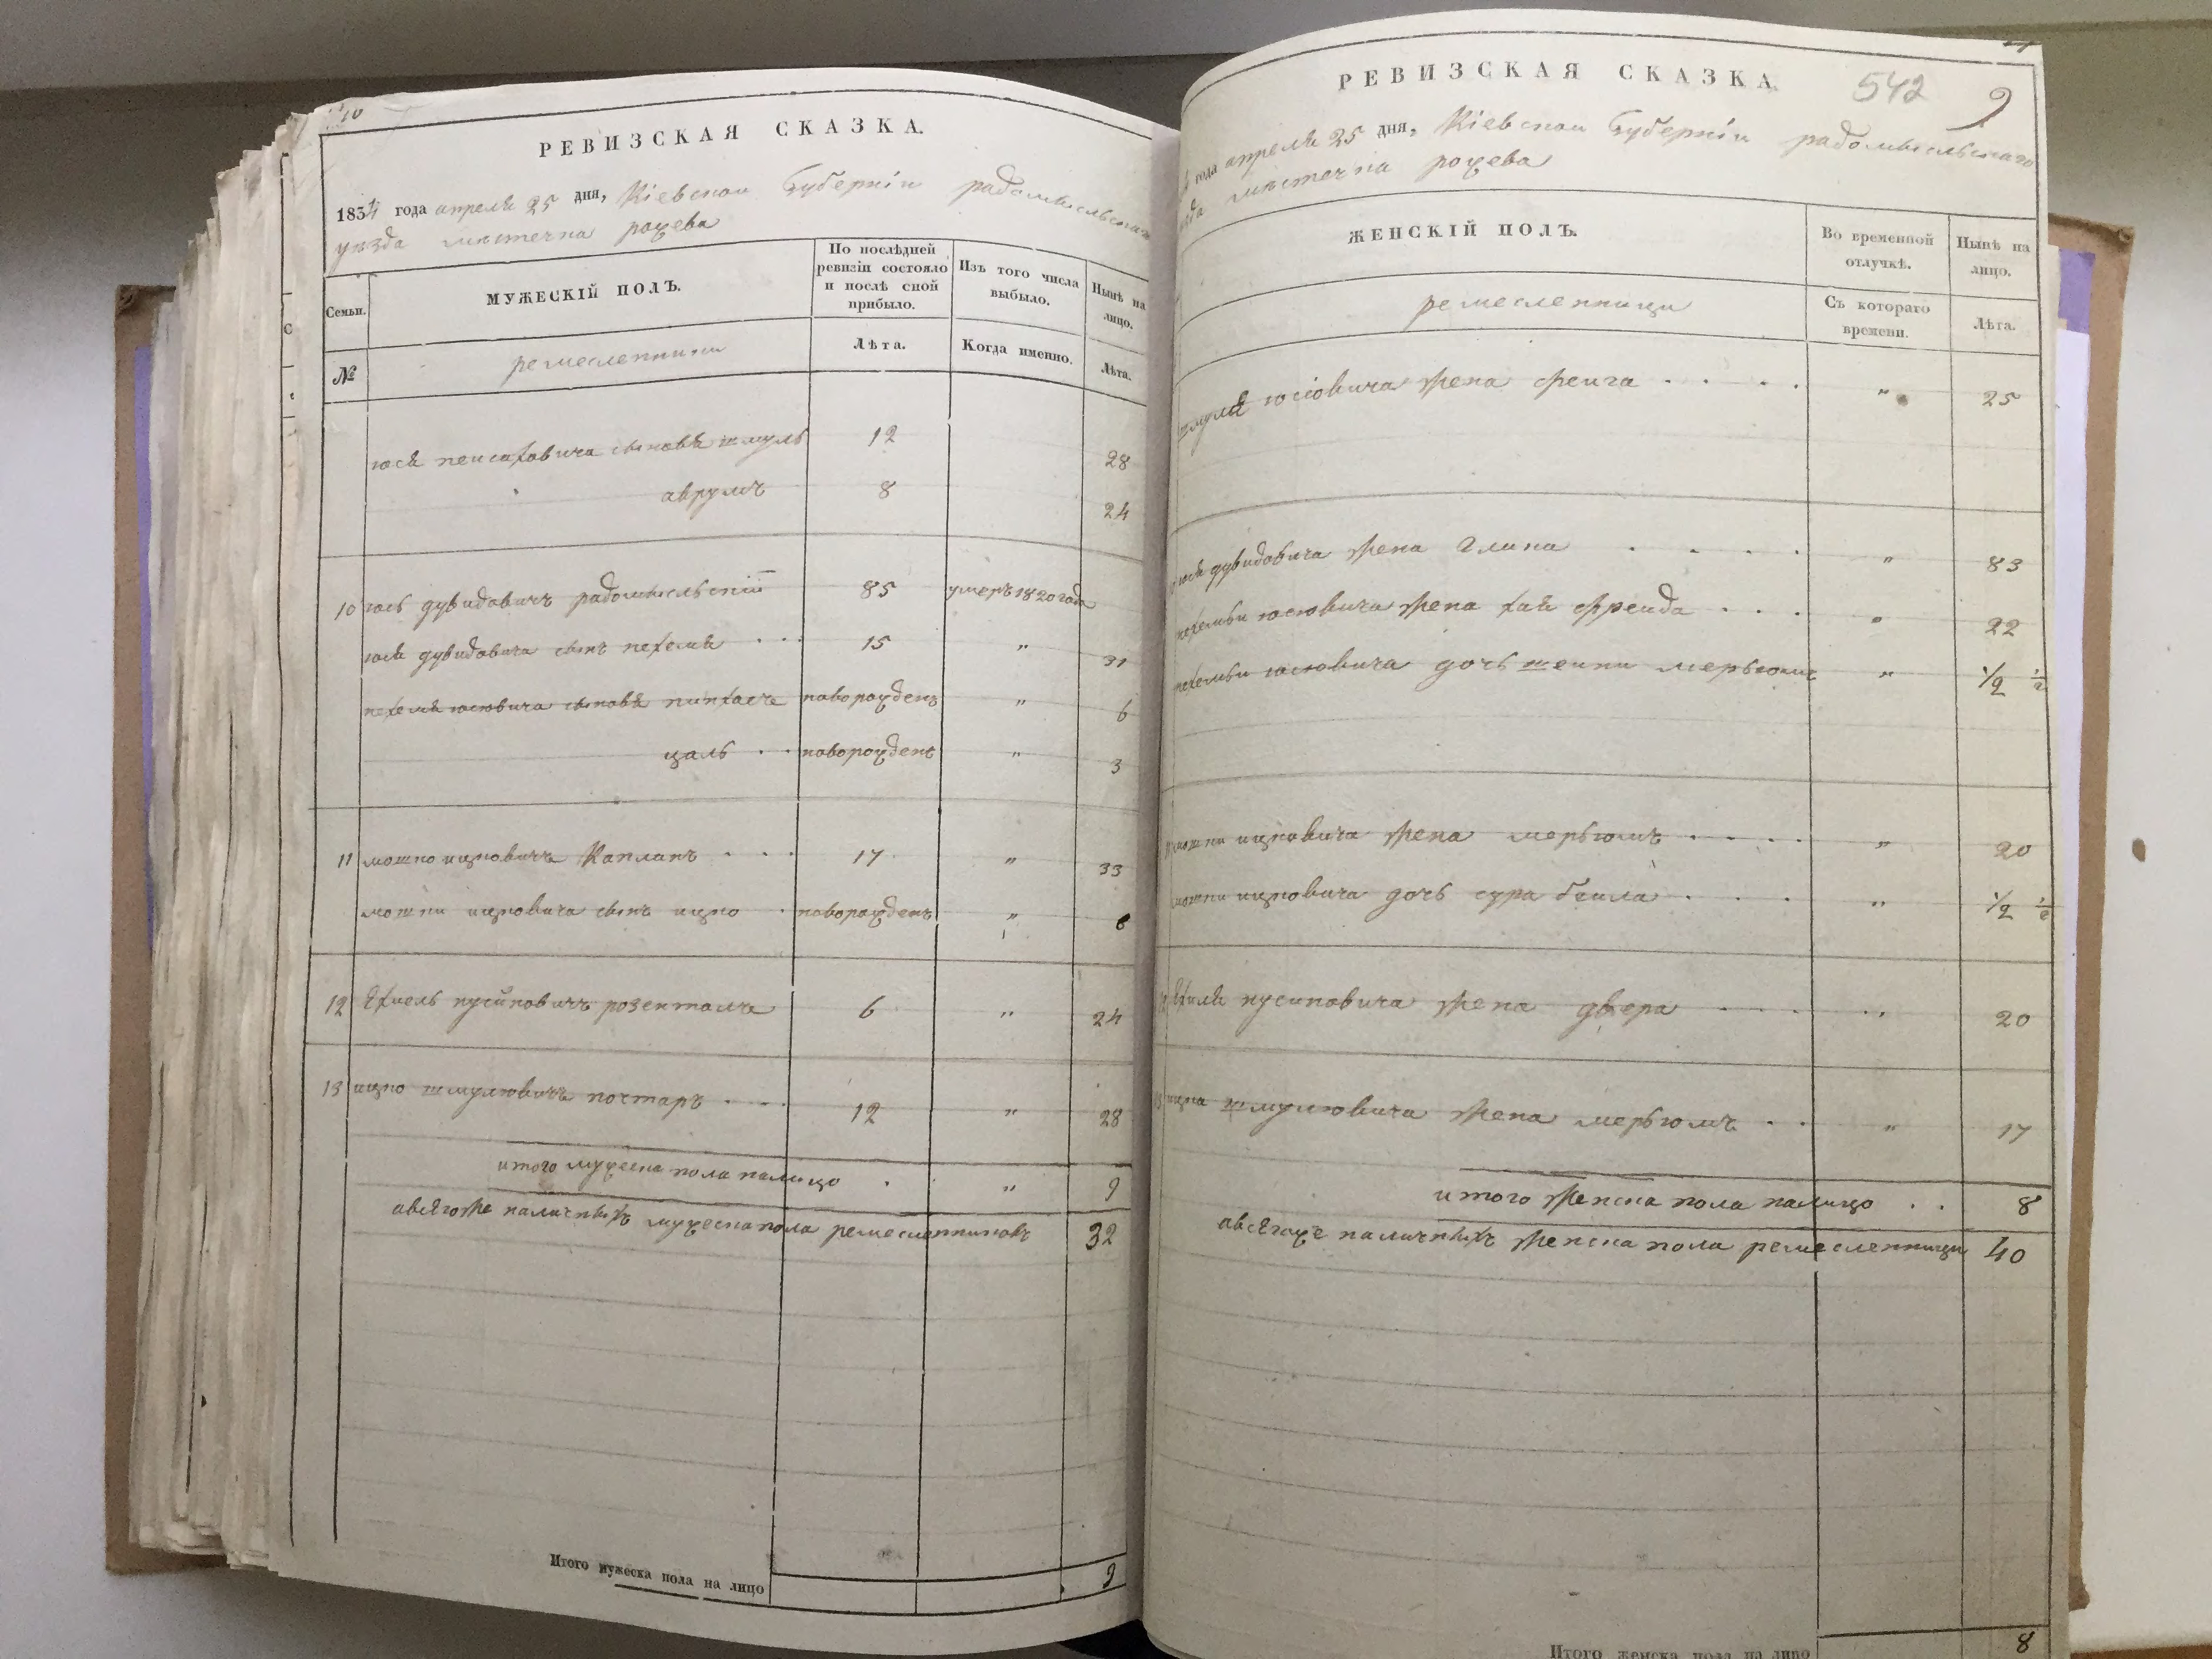 РЕВИЗСКАЯ СКАЗКА.
1834 года апреля 25 дня, Кіевской Губерніи радомысльскаго
уѣзда мѣстечка рожева
Семьи.
МУЖЕСКІЙ ПОЛЪ.
По послѣдней ревизіи состояло и послѣ оной прибыло.
Изъ того числа выбыло.
Нынѣ на лицо.
№
ремесленники
Лѣта.
Когда именно.
Лѣта.
юся пейсаховича сыновя шмуль 12 28
аврумъ 8 24
10 юсь дувидовичъ радомысльскій 85 умеръ 1820 года
юся дувидовича сынъ нехемя . . . 15 " 31
нехемя юсювича сыновя пинхасъ новорожденъ " 6
цаль . . новорожденъ " 3
11 мошко ицковичъ Капланъ . . . 17 " 33
мошки ицковича сынъ ицко . новорожденъ " 6
12 Яхиель нусиновичъ розенталъ 6 " 24
13 ицко шмулювичъ почтаръ . . . 12 " 28
итого мужеска пола налицо . " 9
авсягоже наличныхъ мужеска пола ремесленниковъ 32
Итого мужеска пола на лицо 9
РЕВИЗСКАЯ СКАЗКА.
542
9
года апреля 25 дня, Кіевской Губерніи радомысльскаго
мѣстечка рожева
ЖЕНСКІЙ ПОЛЪ.
Во временной отлучкѣ.
Нынѣ на лицо.
ремесленници
Съ котораго времени.
Лѣта.
шмуля юсіовича жена фейга . . . . " 25
юся дувидовича жена Элика . . . . " 83
нехемьи юсювича жена хая фрейда . . . " 22
нехемьи юсювича дочь шейни мерьюмъ " 1/2 1/2
мошки ицковича жена мерьюмъ . . . . " 20
мошки ицковича дочь сура бейла . . . " 1/2 1/2
Яхиля нусиновича жена двера . . . . " 20
ицка шмулювича жена мерьюмъ . . " 17
итого женска пола налицо . . 8
авсягоже наличныхъ женска пола ремесленници 40
Итого женска пола на лицо 8